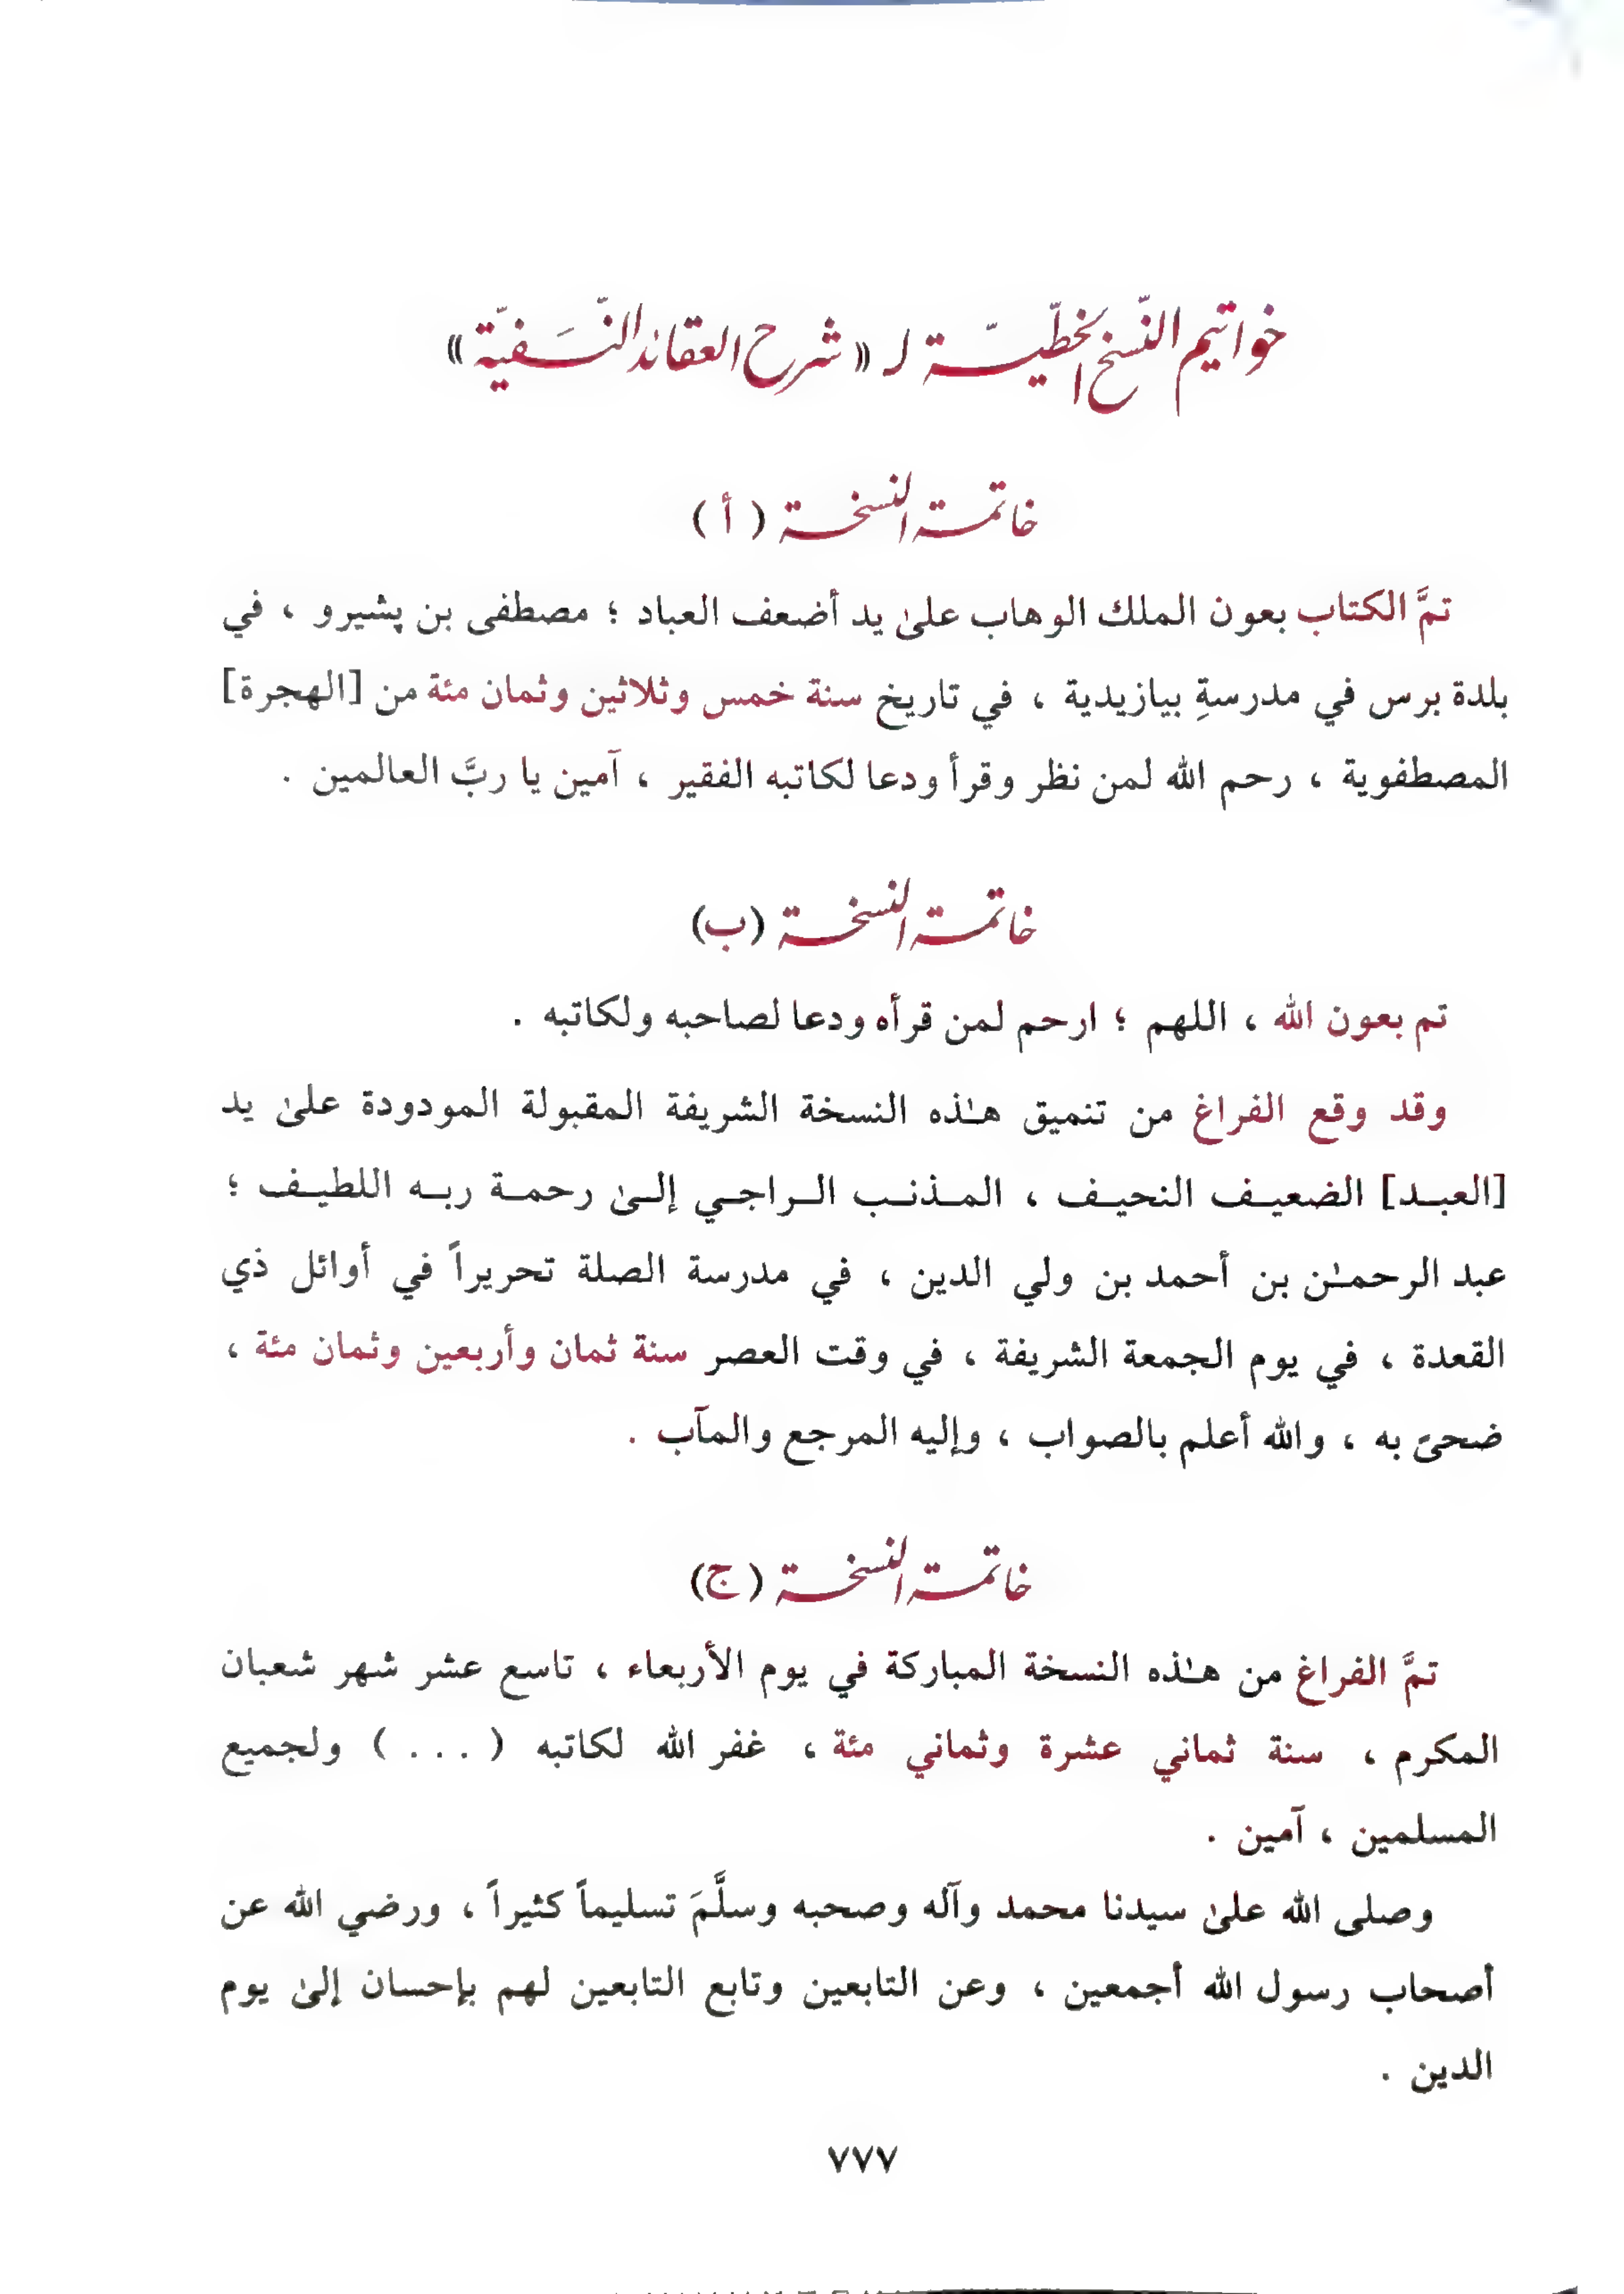 خواتيم النّسخ الخطّيّة لـ « شرح العقائد النّسَفيّة »
خاتمة النسخة ( أ )
تمَّ الكتاب بعون الملك الوهاب علىٰ يد أضعف العباد ؛ مصطفى بن پشيرو ، في
بلدة برس في مدرسةِ بيازيدية ، في تاريخ سنة خمس وثلاثين وثمان مئة من [الهجرة]
المصطفوية ، رحم الله لمن نظر وقرأ ودعا لكاتبه الفقير ، آمين يا ربَّ العالمين .
خاتمة النسخة (ب)
تم بعون الله ، اللهم ؛ ارحم لمن قرأه ودعا لصاحبه ولكاتبه .
وقد وقع الفراغ من تنميق هـٰذه النسخة الشريفة المقبولة المودودة علىٰ يد
[العبـد] الضعيـف النحيـف ، المـذنـب الـراجـي إلـىٰ رحمـة ربـه اللطيـف ؛
عبد الرحمـٰن بن أحمد بن ولي الدين ، في مدرسة الصلة تحريراً في أوائل ذي
القعدة ، في يوم الجمعة الشريفة ، في وقت العصر سنة ثمان وأربعين وثمان مئة ،
ضحىً به ، والله أعلم بالصواب ، وإليه المرجع والمآب .
خاتمة النسخة (ج)
تمَّ الفراغ من هـٰذه النسخة المباركة في يوم الأربعاء ، تاسع عشر شهر شعبان
المكرم ، سنة ثماني عشرة وثماني مئة ، غفر الله لكاتبه ( . . . ) ولجميع
المسلمين ، آمين .
وصلى الله علىٰ سيدنا محمد وآله وصحبه وسلَّمَ تسليماً كثيراً ، ورضي الله عن
أصحاب رسول الله أجمعين ، وعن التابعين وتابع التابعين لهم بإحسان إلىٰ يوم
الدين .
٧٧٧